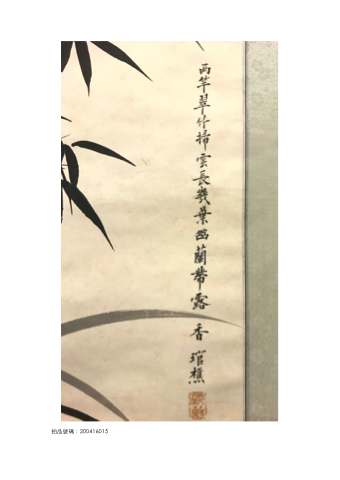 兩竿翠竹掃雲長幾葉幽蘭帶露香 琯樵
拍品號碼：200416015